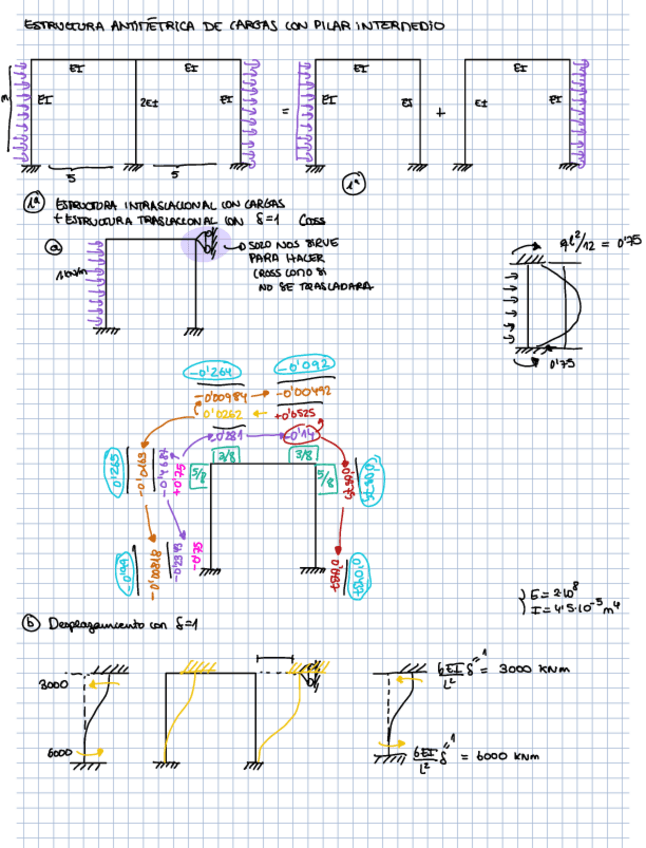 ESTRUCTURA ANTIMÉTRICA DE CARGAS CON PILAR INTERMEDIO
EI EI EI EI
EI 2EI EI EI EI EI EI
= +
5 5
1ª
1ª ESTRUCTURA INTRASLACIONAL CON CARGAS
+ ESTRUCTURA TRASLACIONAL CON δ=1 CROSS
a
SOLO NOS SIRVE
PARA HACER
CROSS COMO SI
NO SE TRASLADARA
1kN/m
ql²/12 = 0'75
0'75
-0'264 -0'092
-0'00984 → -0'00492
0'0262 ← +0'0525
-0'281 -0'14
3/8 3/8
5/8 5/8
0'265 -0'0163 -0'4687 +0'75
0'0875
-0'00818 -0'2343 -0'75
+0'0437
E=2·10⁸
I=4'5·10⁻⁵ m⁴
b Desplazamiento con δ=1
3000
6000
6EI/L² δ = 3000 kNm
6EI/L² δ = 6000 kNm